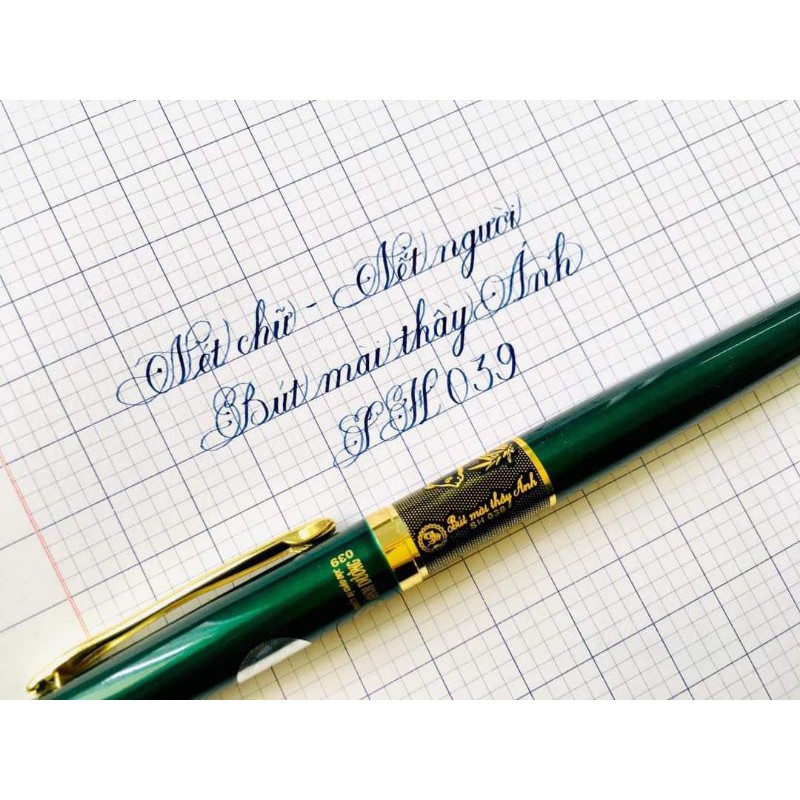 Nét chữ - Nết người
Bút mài thầy Ánh
SH 039
Bút mài thầy Ánh
SH 039
039